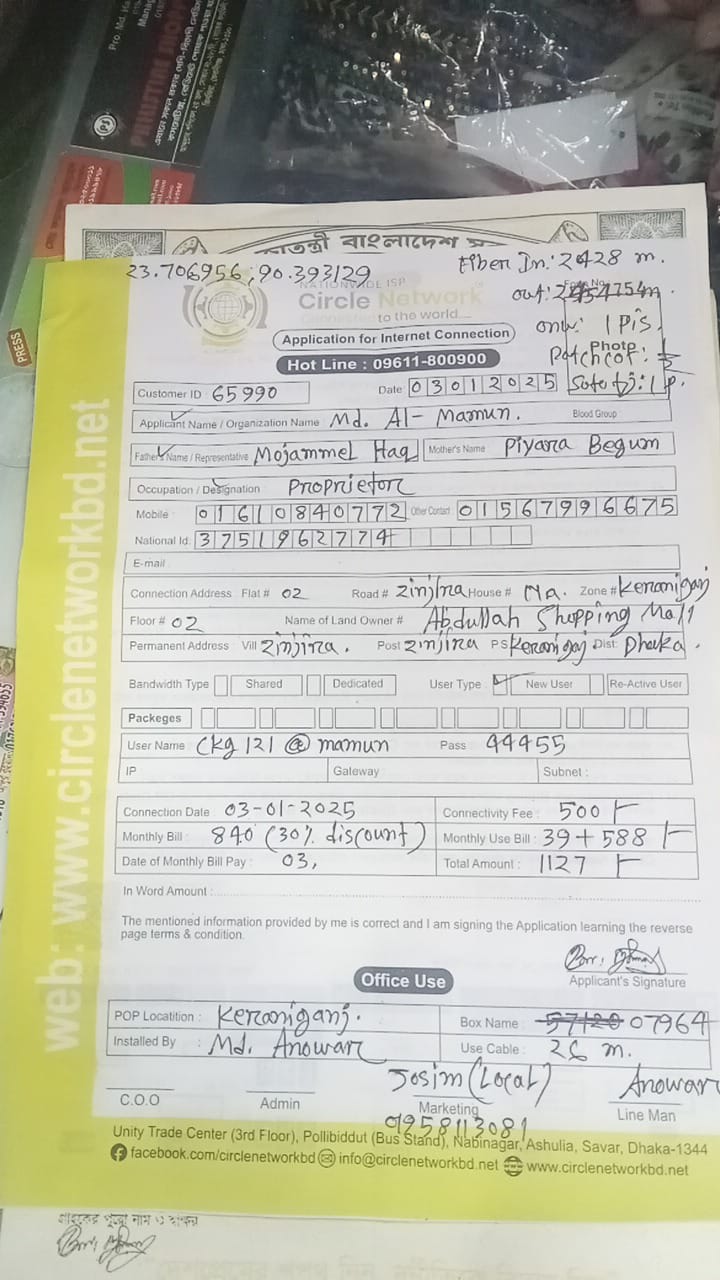 Pro. Md. Ha
গণপ্রজাতন্ত্রী বাংলাদেশ
23.706956, 90.393129
Fiber In: 2428 m.
NATIONWIDE ISP
Circle Network
to the world....
out: 2454 m.
onu: 1 Pis.
Photo
Patchcot:
Application for Internet Connection
Hot Line : 09611-800900
PRESS
Customer ID 65990
Date 03012025
Applicant Name / Organization Name Md. Al- Mamun.
Blood Group
Father's Name / Representative Mojammel Haq
Mother's Name Piyara Begum
Occupation / Designation Proprietor
Mobile 01610840772
Other Contact 01567996675
National Id 3751962774
E-mail
Connection Address Flat # 02 Road # Zinjira House # Na. Zone # Keraniganj
Floor # 02 Name of Land Owner # Abdullah Shopping Mall
Permanent Address Vill Zinjira. Post Zinjira PS Keraniganj Dist: Dhaka.
Bandwidth Type Shared Dedicated User Type New User Re-Active User
Packeges
User Name Ckg 121 @ mamun Pass 44455
IP Gateway Subnet :
Connection Date : 03-01-2025
Connectivity Fee : 500/-
Monthly Bill : 840 (30% discount)
Monthly Use Bill : 39+588/-
Date of Monthly Bill Pay : 03,
Total Amount : 1127/-
In Word Amount :
The mentioned information provided by me is correct and I am signing the Application learning the reverse
page terms & condition.
Applicant's Signature
Office Use
POP Locatition : Keraniganj.
Box Name : 57120 07964
Installed By : Md. Anowar
Use Cable : 26 m.
Josim (Local)
Anowar
C.O.O
Admin
Marketing
Line Man
01958113081
Unity Trade Center (3rd Floor), Pollibiddut (Bus Stand), Nabinagar, Ashulia, Savar, Dhaka-1344
facebook.com/circlenetworkbd info@circlenetworkbd.net www.circlenetworkbd.net
web: www.circlenetworkbd.net
গ্রাহকের পুরো নাম ও স্বাক্ষর